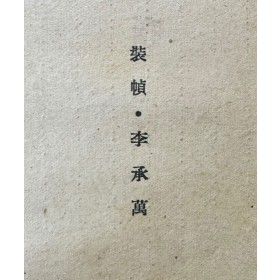 裝幀•李承萬